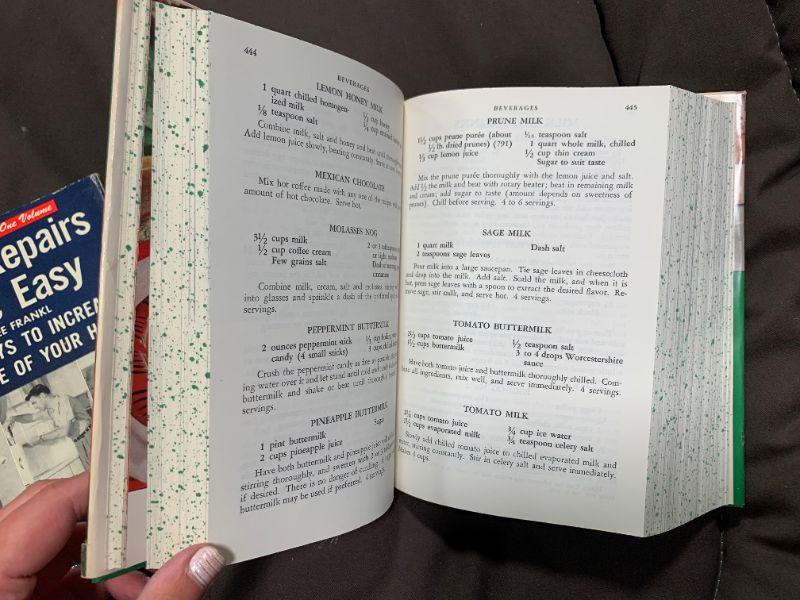 One Volume
Repairs
Easy
EE FRANKL
YS TO INCREA
E OF YOUR H
444
BEVERAGES
LEMON HONEY MILK
1 quart chilled homogen-
ized milk
⅛ teaspoon salt
Combine milk, salt and honey and beat until
Add lemon juice slowly, beating constantly. Serve
MEXICAN CHOCOLATE
Mix hot coffee made with any one of the
amount of hot chocolate. Serve hot.
MOLASSES NOG
3½ cups milk
½ cup coffee cream
Few grains salt
2 or 3
or light
Dash of
Combine milk, cream, salt and molasses
into glasses and sprinkle a dash of the
servings.
PEPPERMINT BUTTERMILK
2 ounces peppermint stick
candy (4 small sticks)
⅓ cup boiling
3 cups chilled
Crush the peppermint candy as fine as possible
ing water over it and let stand until cold and
buttermilk and shake or beat until thoroughly
servings.
PINEAPPLE BUTTERMILK
1 pint buttermilk
2 cups pineapple juice
Have both buttermilk and pineapple juice
stirring thoroughly, and sweeten with 2 or 3
if desired. There is no danger of curdling
buttermilk may be used if preferred. 4 servings.
BEVERAGES
445
PRUNE MILK
1½ cups prune purée (about
½ lb. dried prunes) (791)
⅓ cup lemon juice
teaspoon salt
1 quart whole milk, chilled
½ cup thin cream
Sugar to suit taste
Mix the prune purée thoroughly with the lemon juice and salt.
Add ½ the milk and beat with rotary beater; beat in remaining milk
and cream; add sugar to taste (amount depends on sweetness of
prunes). Chill before serving. 4 to 6 servings.
SAGE MILK
1 quart milk
2 teaspoons sage leaves
Dash salt
Pour milk into a large saucepan. Tie sage leaves in cheesecloth
and drop into the milk. Add salt. Scald the milk, and when it is
hot, press sage leaves with a spoon to extract the desired flavor. Re-
move sage, stir milk, and serve hot. 4 servings.
TOMATO BUTTERMILK
cups tomato juice
1½ cups buttermilk
½ teaspoon salt
3 to 4 drops Worcestershire
sauce
Have both tomato juice and buttermilk thoroughly chilled. Com-
bine all ingredients, mix well, and serve immediately. 4 servings.
TOMATO MILK
cups tomato juice
1½ cups evaporated milk
¾ cup ice water
¾ teaspoon celery salt
Slowly add chilled tomato juice to chilled evaporated milk and
water, stirring constantly. Stir in celery salt and serve immediately.
Makes 4 cups.